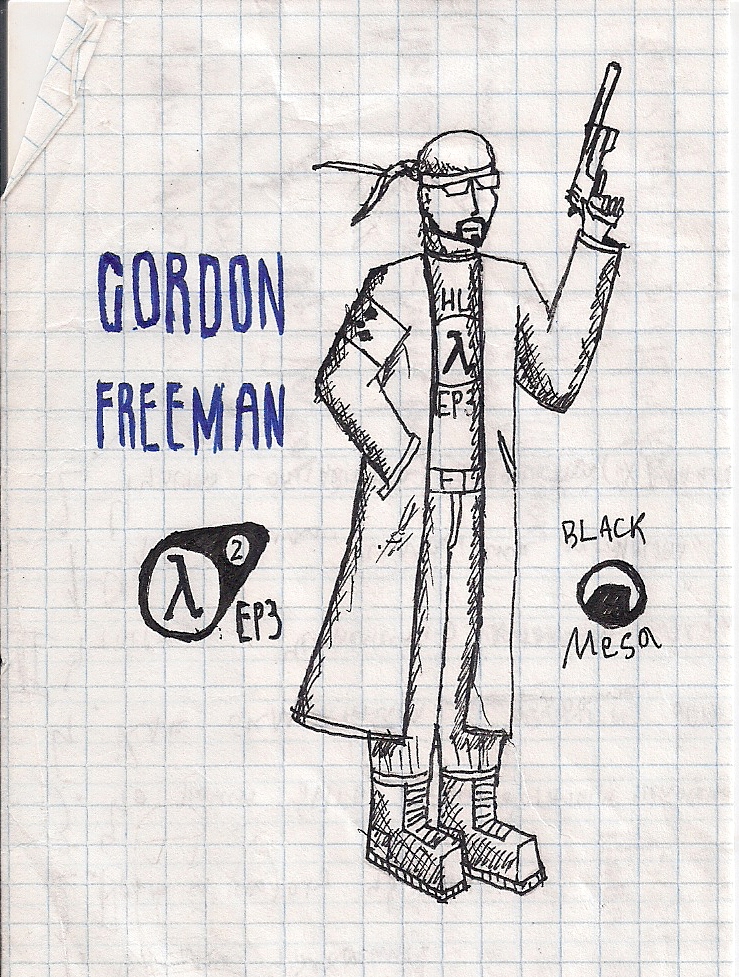 GORDON
FREEMAN
HL
λ
EP3
λ
2
EP3
BLACK
Mesa